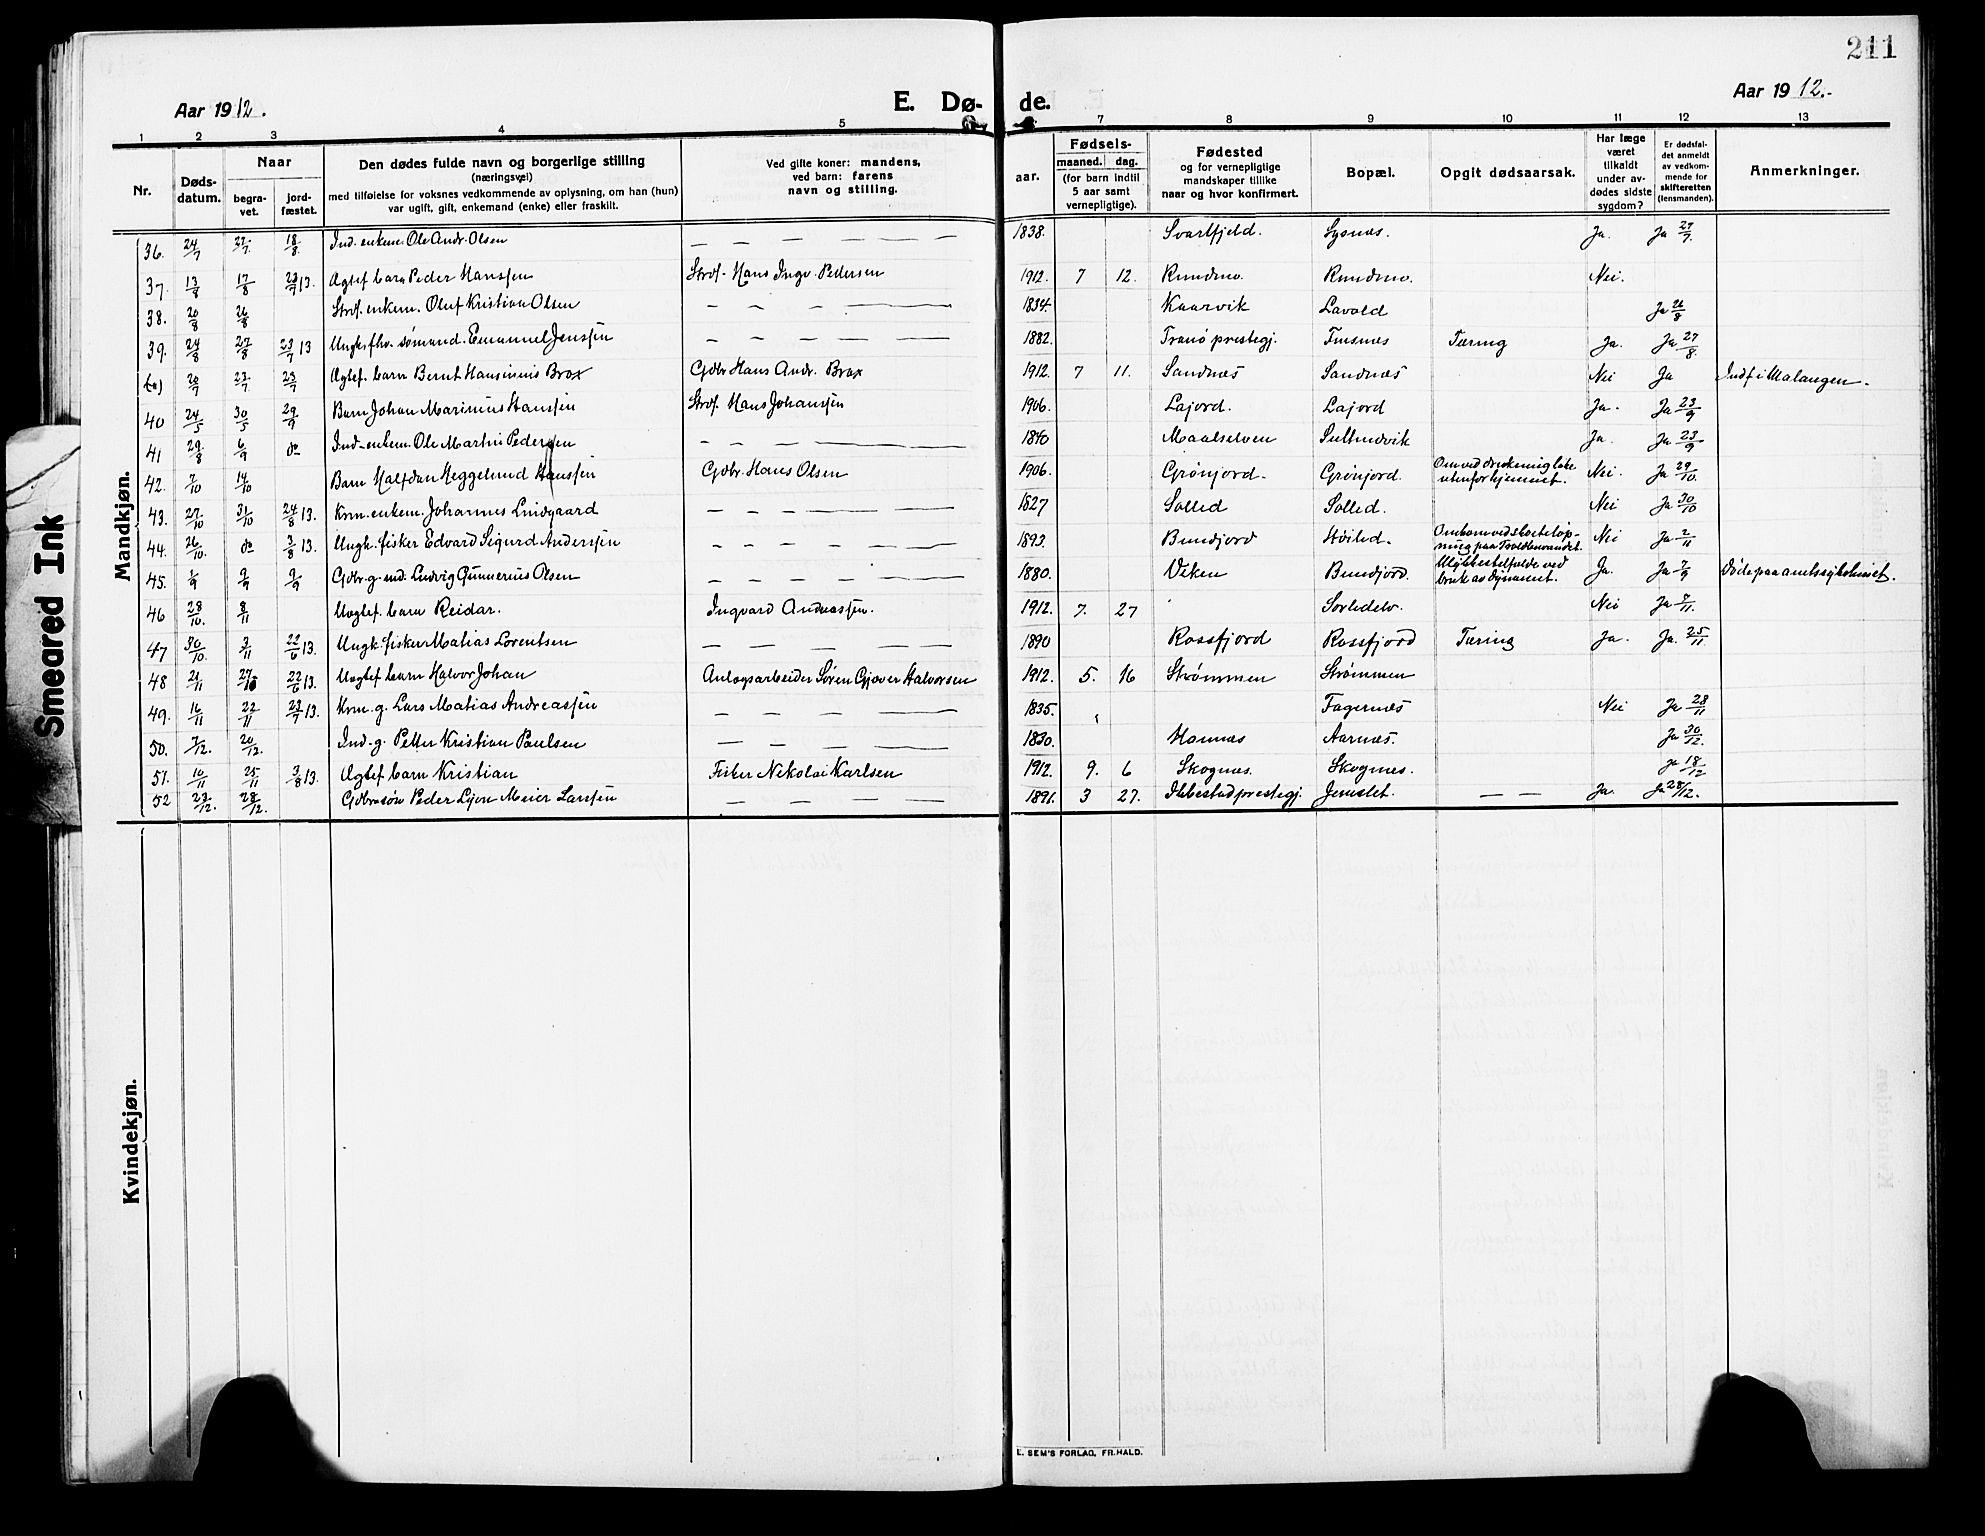 211
Aar 1912.
E. Dø-
de.
Aar 1912.-
1 2 3 4 5 6 7 8 9 10 11 12 13
Nr.
Døds-
datum.
Naar
begra-
vet.
jord-
fæstet.
Den dødes fulde navn og borgerlige stilling
(næringsvei)
med tilføielse for voksnes vedkommende av oplysning, om han (hun)
var ugift, gift, enkemand (enke) eller fraskilt.
Ved gifte koner: mandens,
ved barn: farens
navn og stilling.
Fødsels-
aar.
maaned. dag.
(for barn indtil
5 aar samt
vernepligtige).
Fødested
og for vernepligtige
mandskaper tillike
naar og hvor konfirmert.
Bopæl.
Opgit dødsaarsak.
Har læge
været
tilkaldt
under av-
dødes sidste
sygdom?
Er dødsfal-
det anmeldt
av vedkom-
mende for
skifteretten
(lensmanden).
Anmerkninger.
Mandkjøn.
36. 24/7 27/7 18/8 Ind. enkem. Ole Andr. Olsen — — — — — 1838. Svartfjeld. Lysnæs. Ja. Ja 27/7.
37. 13/8 17/8 23/7 13. Ægtef barn Peder Hanssen Strof. Hans Ingv. Pedersen 1912. 7 12. Rundmo. Rundmo. Nei.
38. 20/8 26/8 Strof. enkem. Oluf Kristian Olsen — — — — — 1834. Kaarvik Lavold Ja 26/8
39. 24/8 27/8 23/7 13 Ungk. fhv. sømand. Emanuel Jenssen — — — — — 1882. Tranø prestegj. Finsnes Tæring Ja. Ja 27/8.
20/7 23/7 23/7 Ægtef. barn Bernt Hansinius Brox Gdbr Hans Andr. Brox 1912. 7 11. Sandnæs Sandnæs Nei Ja Indf i Malangen.
40 24/5 30/5 29/9 Barn Johan Marinius Hanssen Strof. Hans Johanssen 1906. Lajord. Lajord Ja. Ja 23/9
41 29/8 6/9 do Ind. enkem. Ole Martin Pedersen — — — — — 1840 Maalselven Sultindvik Ja. Ja 23/9
42. 7/10 14/10 Barn Halfdan Heggelund Hanssen Gdbr. Hans Olsen 1906. Grønjord. Grønjord. Om ved drukning
utenfor hjemmet. Nei. Ja 29/10.
43. 27/10 31/10 24/8 13. Krm. enkem. Johannes Lindgaard — — — — — 1827 Solled Solled. Nei Ja 30/10
44. 26/10. do 3/8 13. Ungk. fisker Edvard Sigurd Anderssen — — — — — 1893. Bundjord Høiled. Nei Ja 2/11
45. 1/9 9/9 9/9 Gdbr. g. md. Ludvig Gunnerius Olsen — — — — — 1880. Viken Bundjord. Ulykkestilfelde ved
bruk av dynamit. Ja. Ja 7/9 Døde paa amtssykehuset.
46 28/10. 8/11 Uegtef. barn Reidar. Ingvard Andreassen. 1912. 7. 27 Sørledelv. Nei Ja 7/11.
47 30/10. 3/11 22/6 13. Ungk. fisker Matias Lorentsen — — — — — 1890 Rossfjord Rossfjord Tæring Ja. Ja. 25/11
48 21/11 22/6 13. Uegtef barn Halvor Johan Anlægsarbeider Søren Gjøver Halvorsen 1912. 5. 16 Strømmen Strømmen
49. 16/11 22/11 23/7 13. Krm. g. Lars Matias Andreassen — — — — — 1835. Fagernæs Nei Ja 28/11
50. 7/12. 20/12. Ind. g. Petter Kristian Paulsen — — — — — 1830. Hamnæs Aarnæs. Ja 30/12.
51. 10/11 25/11 3/8 13. Ægtef barn Kristian Fisker Nikolai Karlsen 1912. 9. 6 Skognæs. Skognæs. Ja 18/12
52 23/12. 28/12. Gdbrsøn Peder Lyder Meier Larssen — — — — 1891. 3 27. Ibbestad prestegj. Jemslet. — — Ja. Ja 28/12.
Kvindekjøn.
Smeared Ink
E. SEM'S FORLAG, FR.HALD.